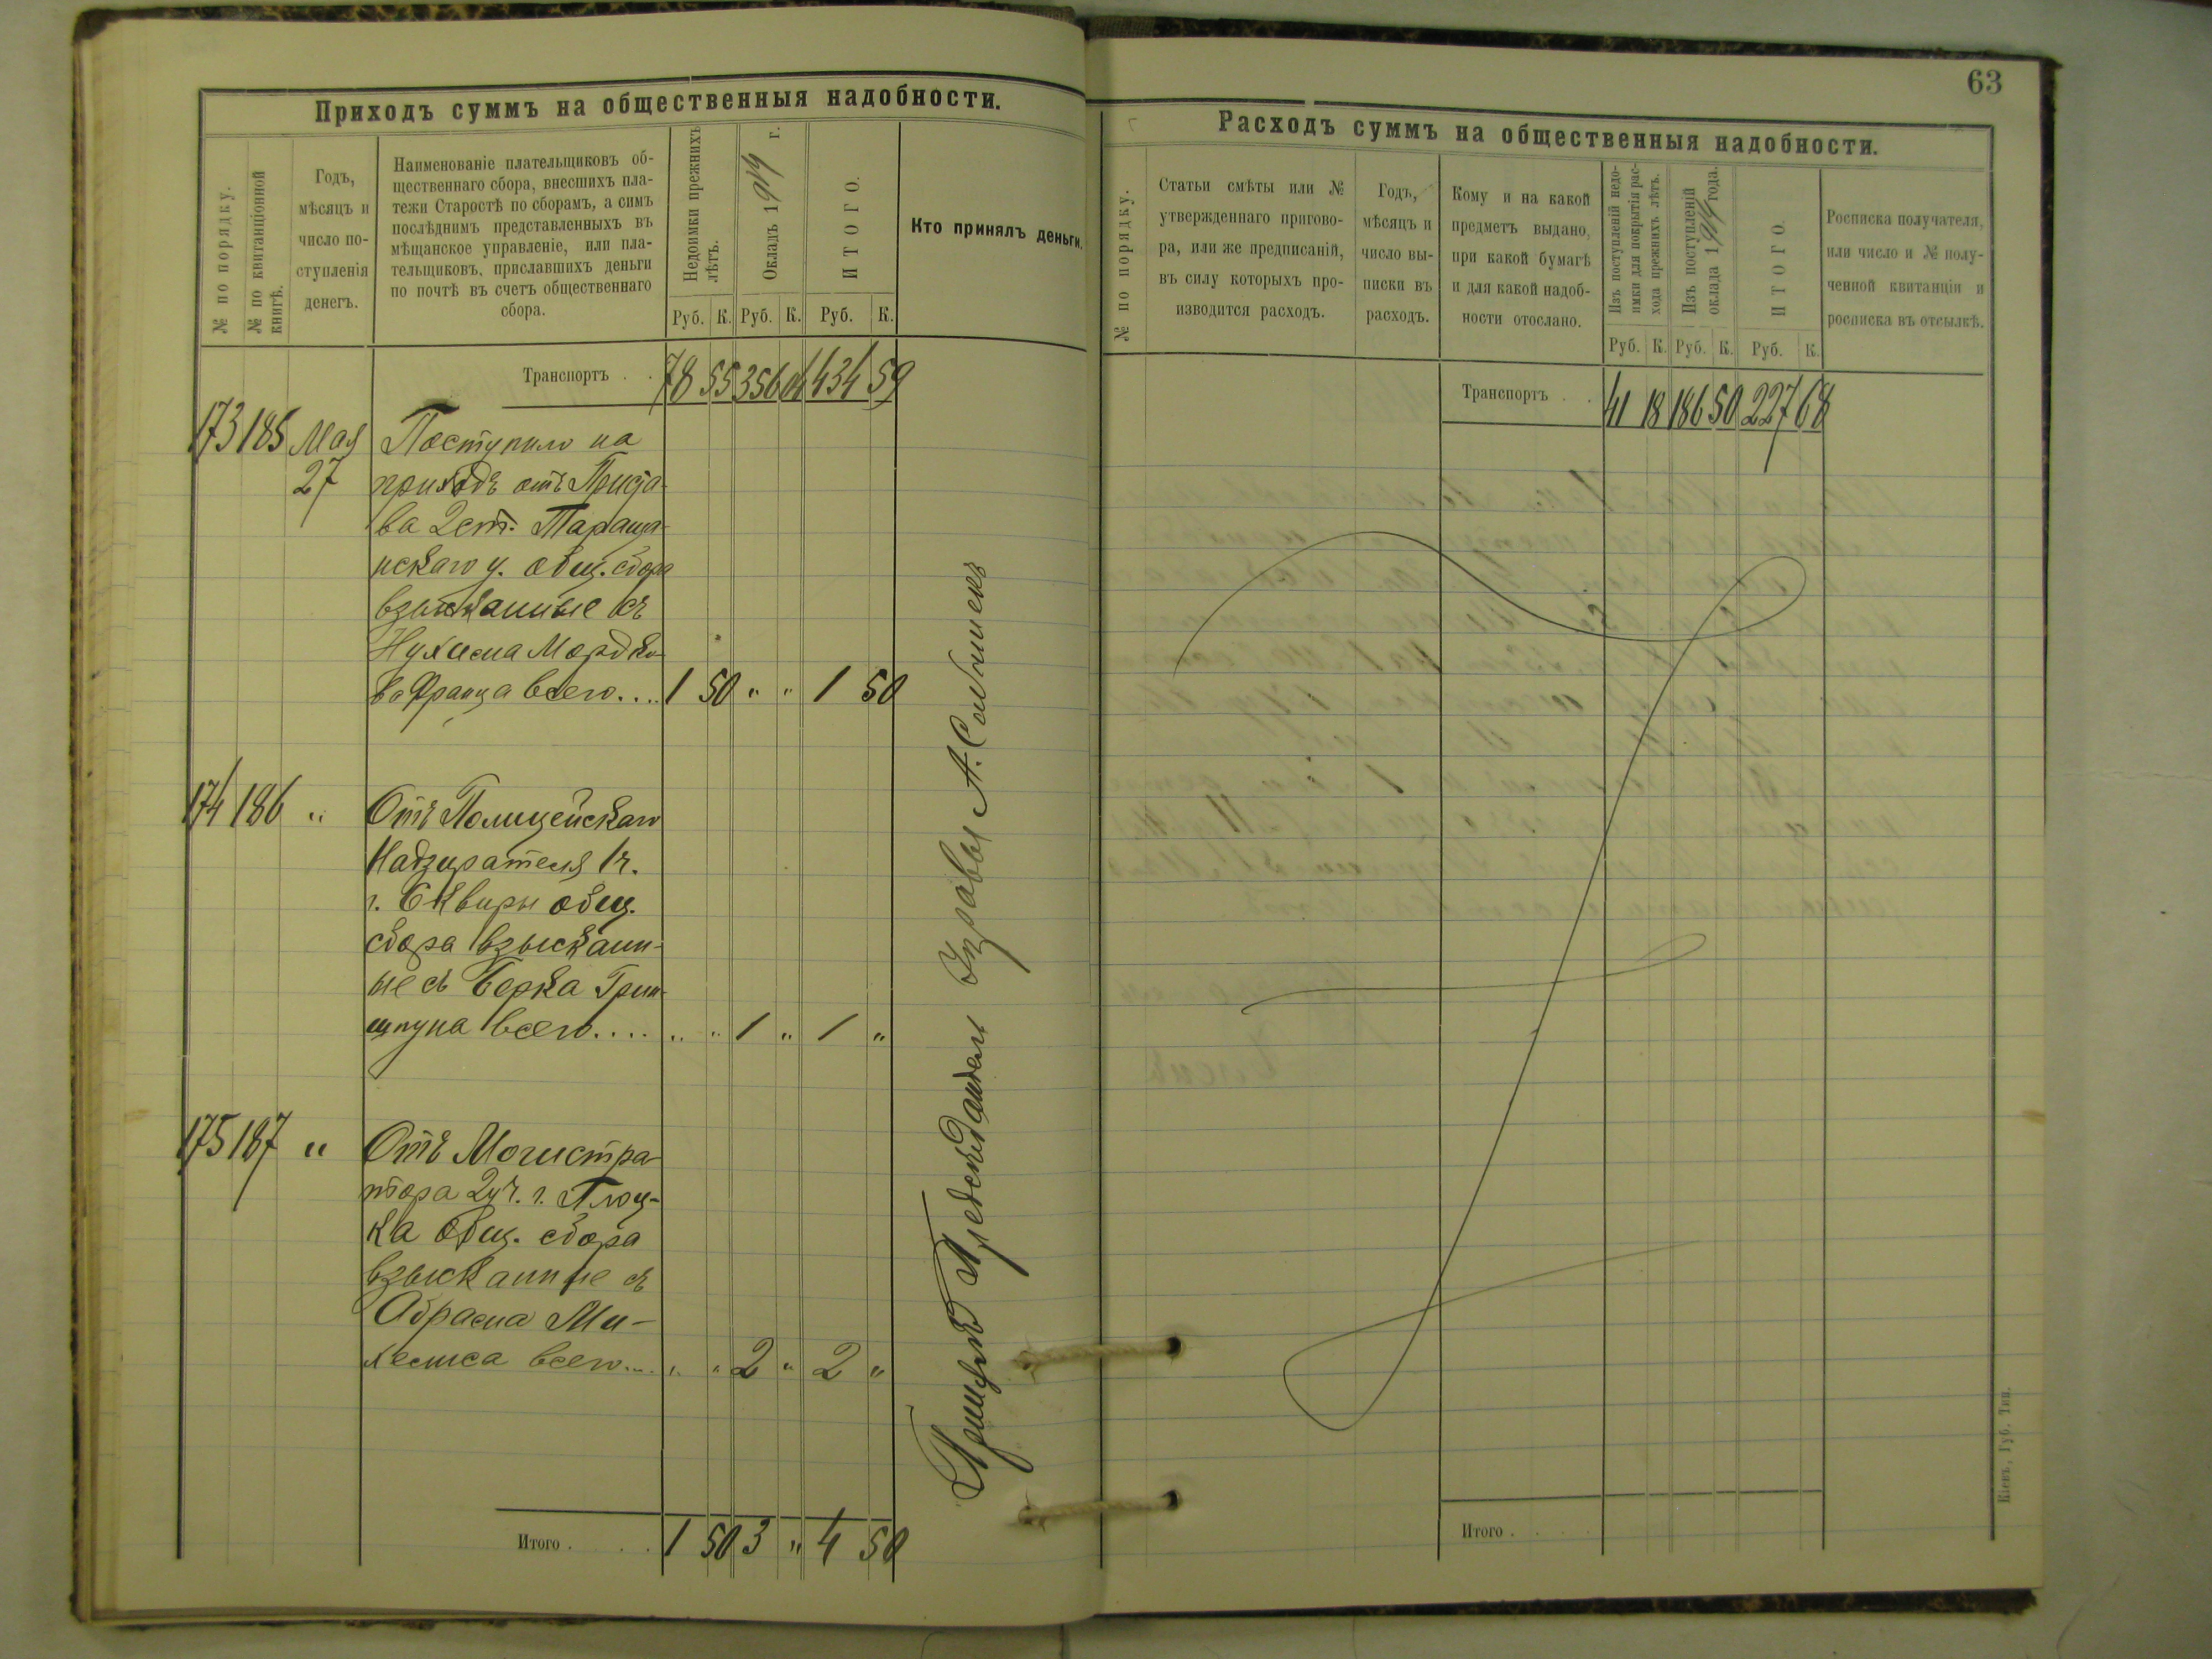 Приходъ суммъ на общественныя надобности.
№ по порядку.
№ по квитанціонной
книгѣ.
Годъ,
мѣсяцъ и
число по-
ступленія
денегъ.
Наименованіе плательщиковъ об-
щественнаго сбора, внесшихъ пла-
тежи Старостѣ по сборамъ, а симъ
послѣднимъ представленныхъ въ
мѣщанское управленіе, или пла-
тельщиковъ, приславшихъ деньги
по почтѣ въ счетъ общественнаго
сбора.
Недоимки прежнихъ
лѣтъ.
Окладъ 1914 г.
ИТОГО.
Руб. К. Руб. К. Руб. К.
Кто принялъ деньги.
Транспортъ . . 78 55 356 04 434 59
173 185 Мая Поступило на
27 приходъ отъ Приста-
ва 2 ст. Тараща-
нскаго у. общ. сбора
взысканные съ
Нухима Мордко-
ва Франца всего.... 1 50 " " 1 50
174 186 " Отъ Полицейскаго
Надзирателя 1 ч.
г. Сквиры общ.
сбора взыскан-
ые съ Берка Грин-
шпуна всего.... " " 1 " 1 "
175 187 " Отъ Могистра-
тора 2 уч. г. Плоц-
ка общ. сбора
взысканные съ
Абрама Ми-
всего.... " " 2 " 2 "
Итого . . . 1 50 3 " 4 50
Предсѣдатель Управы А.
63
Расходъ суммъ на общественныя надобности.
№ по порядку.
Статьи смѣты или №
утвержденнаго пригово-
ра, или же предписаній,
въ силу которыхъ про-
изводится расходъ.
Годъ,
мѣсяцъ и
число вы-
писки въ
расходъ.
Кому и на какой
предметъ выдано,
при какой бумагѣ
и для какой надоб-
ности отослано.
Изъ поступленій недо-
имки для покрытія рас-
хода прежнихъ лѣтъ.
Изъ поступленій
оклада 1914 года.
ИТОГО.
Руб. К. Руб. К. Руб. К.
Росписка получателя,
или число и № полу-
ченной квитанціи и
росписка въ отсылкѣ.
Транспортъ . . 41 18 186 50 227 68
Итого . . . .
Кіевъ, Губ. Тип.